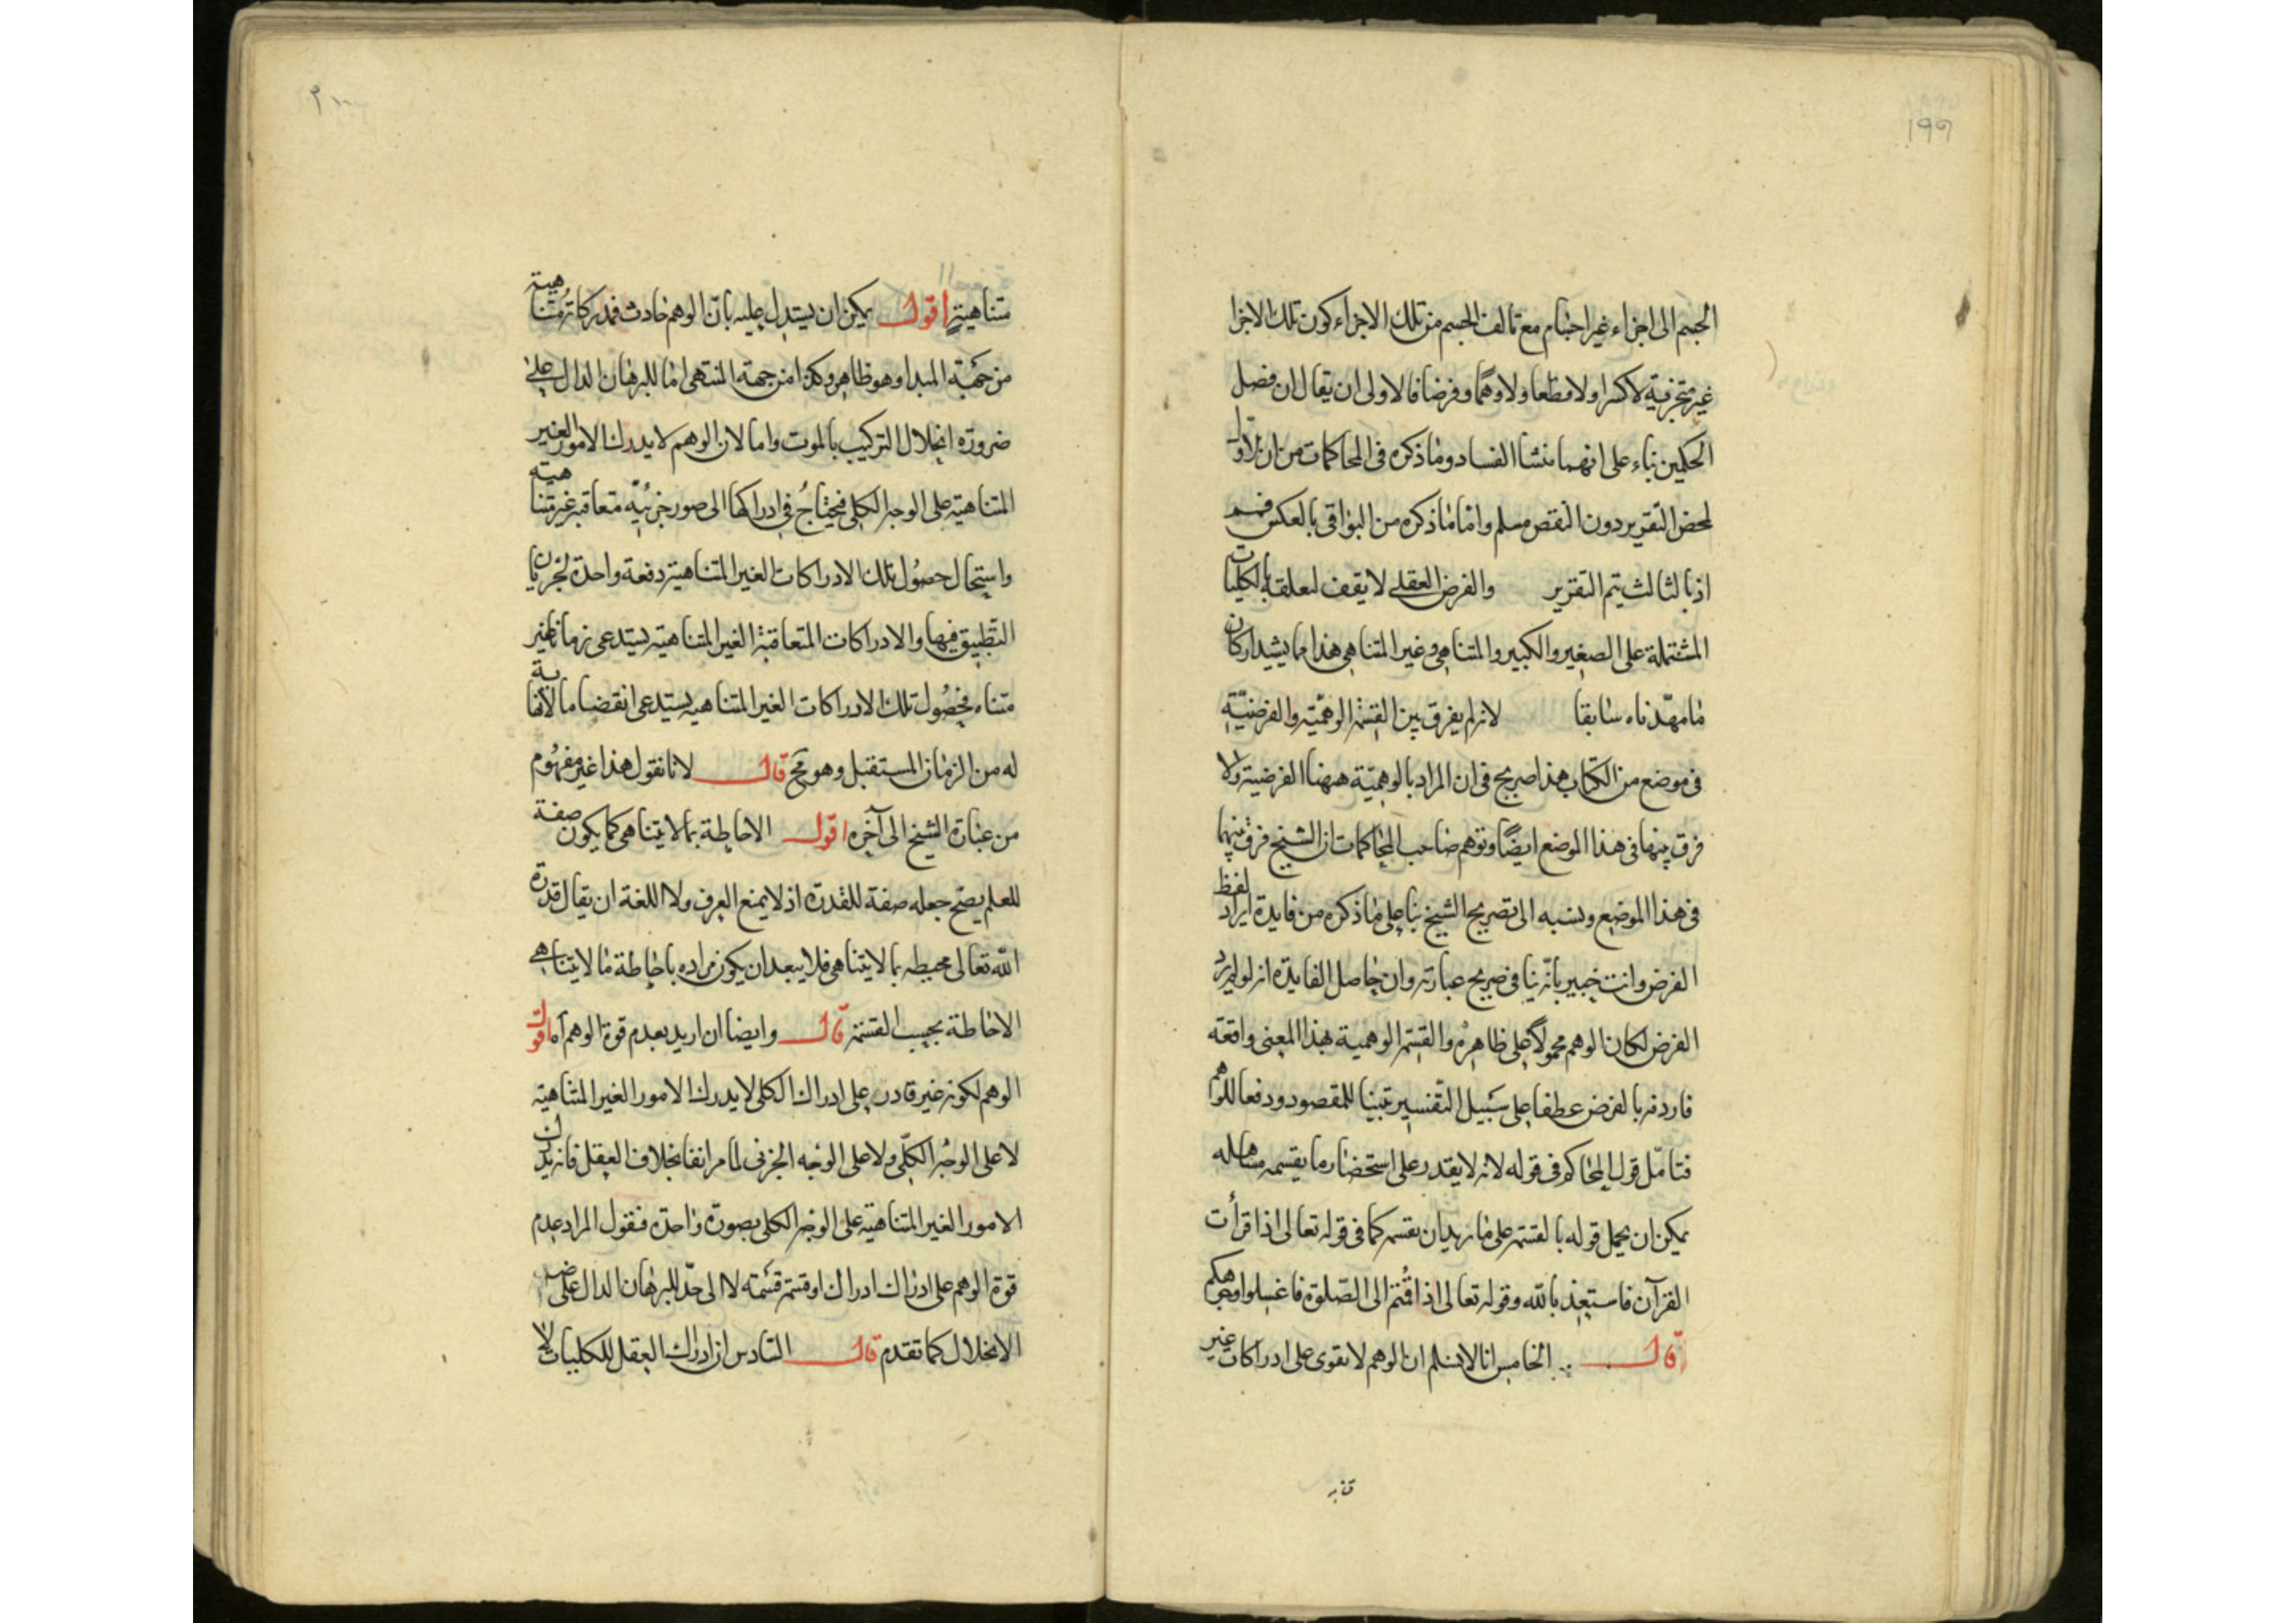 ١٩٩
الجسم الى اجزاء غير اجسام مع تالف الجسم من تلك الاجزاء كون تلك الاجزا
غير متجزئية لا كسرا ولا قطعا ولا وهمًا وفرضا فالاولى ان يقال ان فصل
الحكمين بناء على انهما منشا الفساد وما ذكره فى المحاكمات من ان الاول
لمحض التقرير دون النقص مسلم واما ما ذكره من البواقى بالعكس
اذ بالثالث يتم التقرير والفرض العقلے لا يقف لتعلقه بالكليات
المشتملة على الصغير والكبير والمتناهى وغير المتناهى هذا مما يشيد اركان
ما مهّدناه سابقا لانه لم يفرق بين القسمة الوهميّة والفرضيّة
فى موضع من الكتاب هذا صريح فى ان المراد بالوهميّة ههنا الفرضية ولا
فرق بينها فى هذا الموضع ايضًا وتوهم صاحب المحاكمات ان الشيخ فرق بينهما
فى هذا الموضع ونسبه الى تصريح الشيخ بنا على ما ذكره من فايدة ايراد لفظ
الفرض وانت خبير بانّه ينافى صريح عبارته وان حاصل الفايدة انه لو لم يرد
الفرض لكان الوهم محمولًا على ظاهره والقسمة الوهمية بهذا المعنى واقعة
فاردفه بالفرض عطفا على سبيل التفسير تبينا للمقصود ودفعا للوهم
فتامّل قول المحاكم فى قوله لانه لا يقدر على استحضار ما يقسمه
يمكن ان يحمل قوله بالقسمة على ما يريد ان يقسمه كما فى قوله تعالى اذا قرأت
القرآن فاستعِذ بالله وقوله تعالى اذا قُمتم الى الصّلوة فاغسلوا وجوهكم
قال الخامس انا لا نسلم ان الوهم لا يقوى على ادراكات غير
متناهيةٍ اقول يمكن ان يستدل عليه بانّ الوهم حادث فمدركاته متناهية
من جهة المبدا وهو ظاهر وكذا من جهة المنتهى اما للبرهان الدال على
ضرورة انحلال التركيب بالموت واما لان الوهم لا يدرك الامور الغير
المتناهية على الوجه الكلى فيحتاجُ فى ادراكها الى صور جزئيّة متعاقبة غير متناهية
واستحال حصول تلك الادراكات الغير المتناهية دفعة واحدة لجريان
التطبيق فيها والادراكات المتعاقبة الغير المتناهية يستدعى زمانا غير
متناه فحصُول تلك الادراكات الغير المتناهية يستدعى انقضا ما لا نهاية
له من الزمان المستقبل وهو مح قال لانا نقول هذا غير مفهُوم
من عبارة الشيخ الى آخره اقول الاحاطة بما لا يتناهى كما يكون صفة
للعلم يصح جعله صفة للقدرة اذ لا يمنع العرف ولا اللغة ان يقال قدرة
الله تعالى محيطه بما لا يتناهى فلا يبعد ان يكون مراده باحاطة ما لا يتناهى
الاحاطة بحسب القسمة قال وايضا ان اريد بعدم قوة الوهم آه اقول
الوهم لكونه غير قادر على ادراك الكلى لا يدرك الامور الغير المتناهية
لا على الوجُه الكلّى ولا على الوجه الجزئى لما مر انفا بخلاف العقل فانه يدرك
الامور الغير المتناهية على الوجه الكلى بصورة واحدة فنقول المراد عدم
قوة الوهم على ادراك ادراك او قسمة قسمة لا الى حدّ للبرهان الدال على
الانحلال كما تقدم قال السادس ان ادراك العقل للكليات